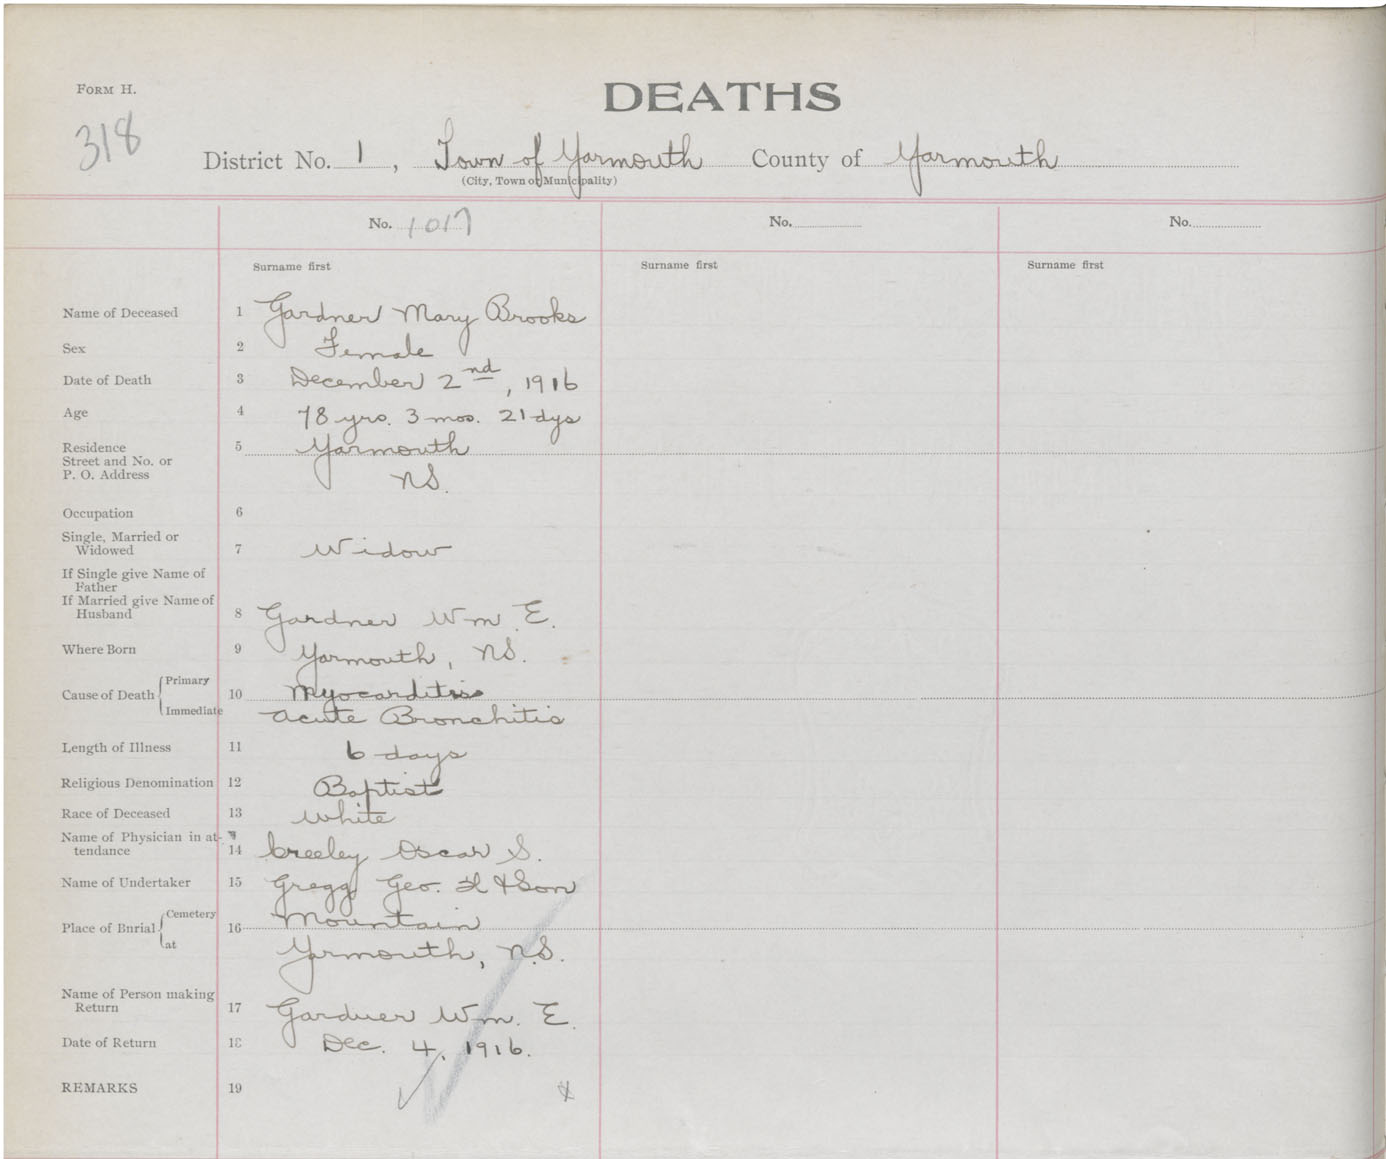 FORM H.
DEATHS
318
District No. 1, Town of Yarmouth County of Yarmouth
(City, Town or Municipality)
No. 1017 No. No.
Surname first Surname first Surname first
Name of Deceased 1 Gardner Mary Brooks
Sex 2 Female
Date of Death 3 December 2nd, 1916
Age 4 78 yrs. 3 mos. 21 dys
Residence 5 Yarmouth
Street and No. or
P. O. Address NS.
Occupation 6
Single, Married or
Widowed 7 Widow
If Single give Name of
Father
If Married give Name of
Husband 8 Gardner Wm. E.
Where Born 9 Yarmouth, NS.
Cause of Death Primary 10 Myocarditis
Immediate acute Bronchitis
Length of Illness 11 6 days
Religious Denomination 12 Baptist
Race of Deceased 13 White
Name of Physician in at-
tendance 14 Creeley Oscar S.
Name of Undertaker 15 Gregg Geo. H & Son
Place of Burial Cemetery 16 Mountain
at Yrmouth, N.S.
Name of Person making
Return 17 Gardner Wm. E.
Date of Return 18 Dec. 4, 1916.
REMARKS 19